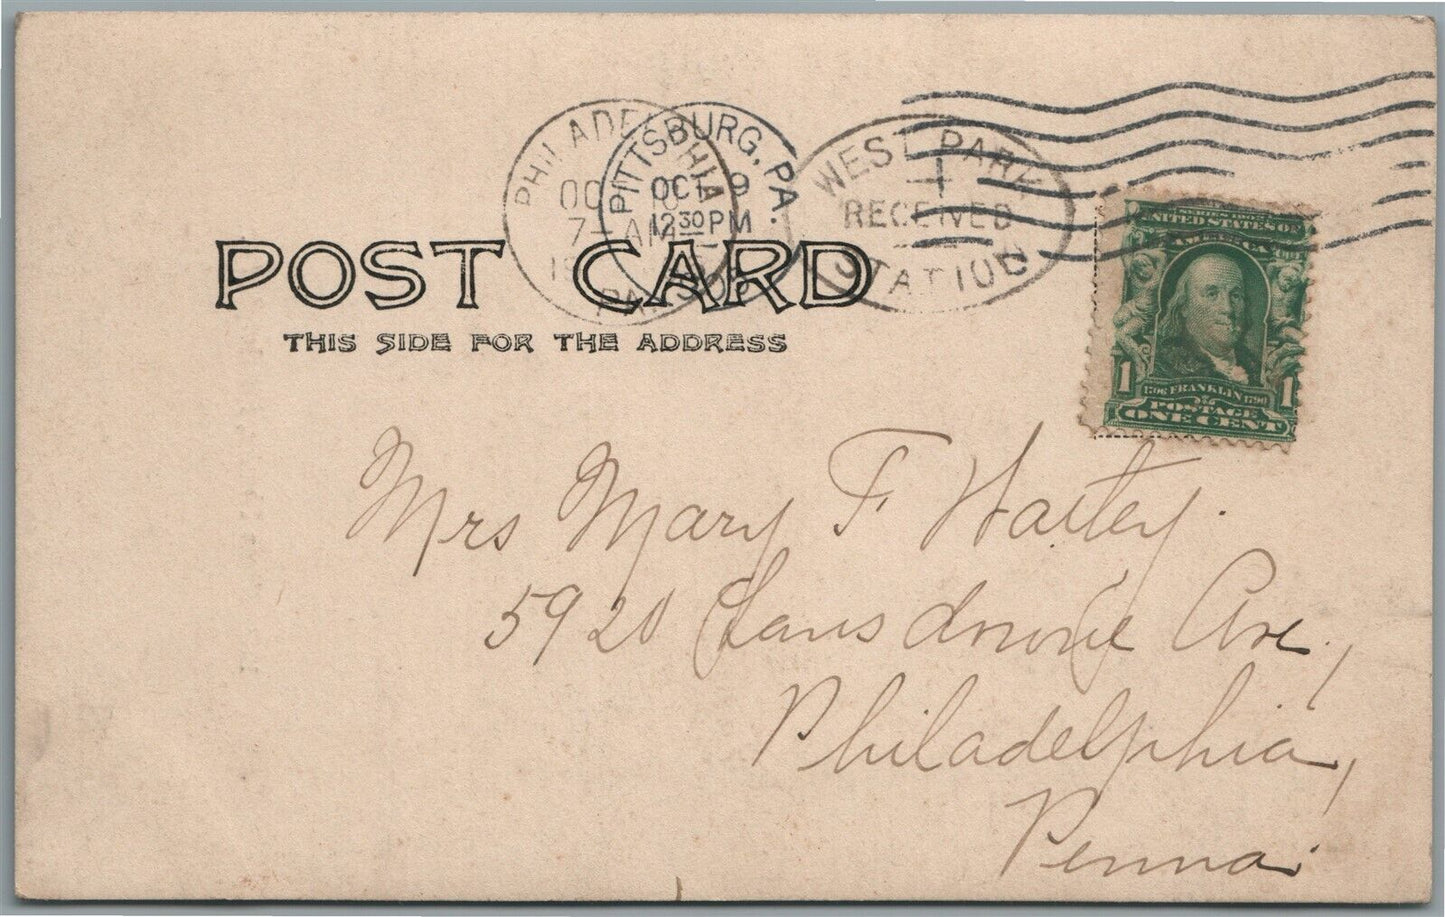 PHILADELPHIA
OCT 10
7- AM
PA.
PITTSBURG, PA.
OCT 9
12 30 PM
WEST PARK
RECEIVED
STATION
POST CARD
THIS SIDE FOR THE ADDRESS
SERIES 1902
UNITED STATES OF
AMERICA
1 1706 FRANKLIN 1790 1
POSTAGE
ONE CENT
Mrs Mary F Hartey.
5920 Lansdowne Ave,
Philadelphia,
Penna.